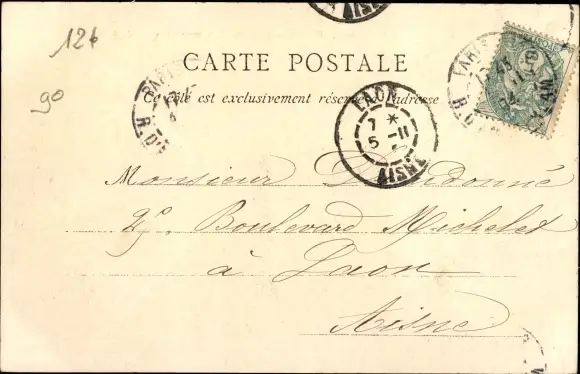 126
90
CARTE POSTALE
Ce côté est exclusivement réservé à l'adresse
LAON
7 *
5 -11
AISNE
PARIS
Monsieur Dieudonné
29. Boulevard Michelet
à Laon
Aisne